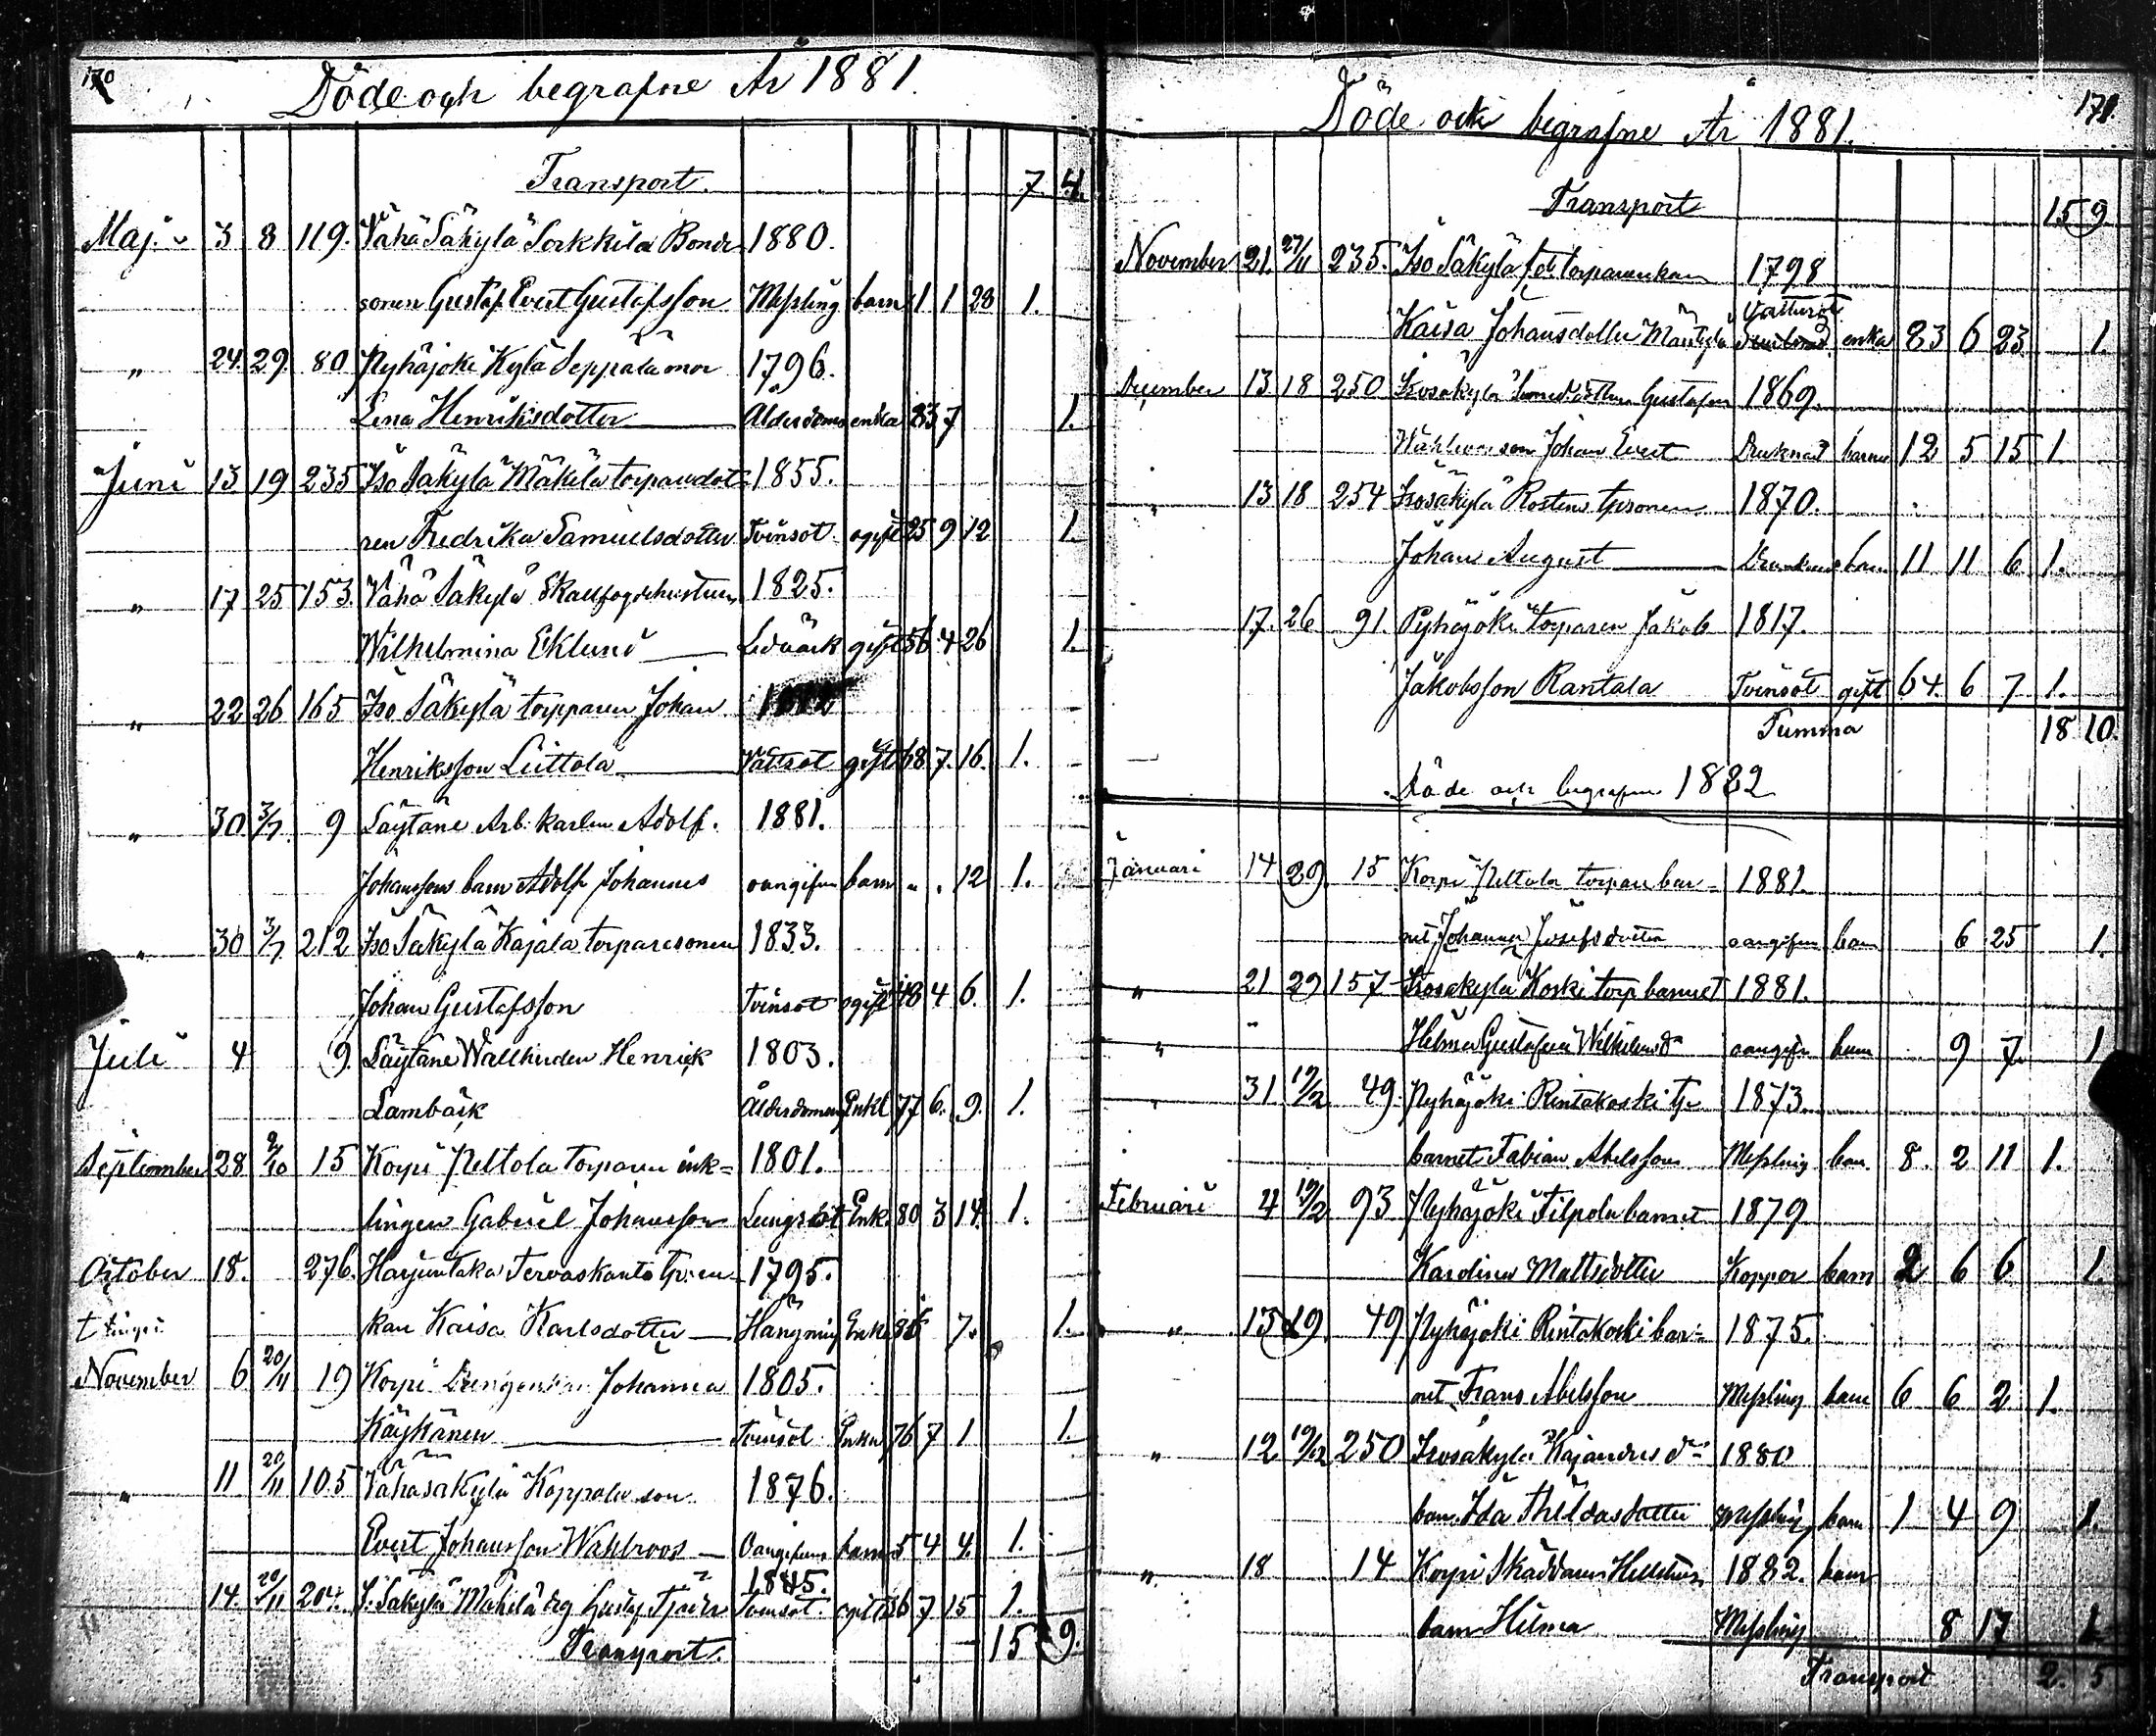 170
Döde och begrafne År 1881.
Transport. 7 4.
Maj. 3 8 119. Vähä Säkylä Sorkkila Bonde 1880.
sonen Gustaf Evert Gustafsson Messling barn 1 1 28 1.
" 24. 29. 80 Pyhäjoki Kylä Seppälä mor 1796.
Lena Henriksdotter Ålderdoms enka 83 7 1.
Juni 13 19 235 Iso Säkylä Mäkilä torparedot= 1855.
ren Fredrika Samuelsdotter Tvinsot ogift 25 9 12 1.
" 17 25 153. Vähä Säkylä Skallfogdehustrun 1825.
Wilhelmina Eklund Ledvärk gift 56 4 26 1.
" 22 26 165 Iso Säkylä torparen Johan
Henriksson Liittola Vattsot gift 68 7. 16. 1.
" 30 3/7. 9 Löytäne Arb. karlen Adolf. 1881.
Johanssons barn Adolf Johannes oangifven barn " . 12 1.
" 30 3/7 212 Iso Säkylä Kajala torparesonen 1833.
Johan Gustafsson Tvinsot ogift 48 4 6. 1.
Juli 4 9. Löytäne Wallhinden Henrik 1803.
Lambäck Ålderdomen Enkl 77 6. 9. 1.
September 28 9/10 15 Korpi Peltola torparen enk= 1801.
lingen Gabriel Johansson Lungsot Enk. 80 3 14. 1.
October 18. 276. Harjuntaka Tervaskanto tp.en= 1795.
kan Kaisa Karlsdotter Hängning Enka 86 7. 1.
November 6 20/11 19 Korpi Drengenkan Johanna 1805.
Käykänen Tvinsot Enka 76 7 1 1.
" 11 20/11 105 Vähäsäkylä Koppala son 1876.
Evert Johansson Wahlroos Oangifven barn 5 4 4. 1.
14. 20/11 204. I. Säkylä Mäkilä drg Gustaf 1845. Tvinsot. 36 7 15 1.
Transport. 15 9.
171.
Döde och begrafne År 1881.
Transport 15 9.
November 21. 27/11 235. Iso Säkylä f.d. torpareenkan 1798
Kaisa Johansdotter Mäntylä Vattusot enka 83 6 23 1.
December 13 18 250 Isosäkylä Gustafva 1869.
Wahlroos son Johan Evert Druknad barn 12 5 15 1
" 13 18 254 Isosäkylä Rostens tp.sonen 1870.
Johan August Druknad barn 11 11 6 1.
17. 26 91. Pyhäjoki torparen Jakob 1817.
Jakobsson Rantala Tvinsot gift 64. 6 7 1.
Summa 18 10.
Döde och begrafne 1882
Januari 14 29 15 Korpi Peltola torpare bar= 1881.
net Johanna Josefsdotter oangifven barn 6 25 1.
" 21 29 157 Isosäkylä Koski torp barnet 1881.
" " Helma Gustafva Wilhelmsdr oangifv barn 9 7. 1
" 31 19/2 49. Pyhäjoki Rintakoski tp 1873.
barnet Fabian Abelsson Messling barn. 8. 2 11 1.
Februari 4 19/2 93 Pyhäjoki Tilpola barnet 1879
Karolina Mattsdotter Koppor barn 2 6 6 1.
" 13 19. 49 Pyhäjoki Rintakoski bar= 1875.
net Frans Abelsson Messling barn 6 6 2 1.
" 12 19/2 250 Isosäkylä Kajanders dr 1880
barn Ida Thildasdotter Messling barn 1 4 9 1.
" 18 14 Korpi Skäddaren 1882. barn
barn Hilma Messling 8 17 1
Transport 2. 5